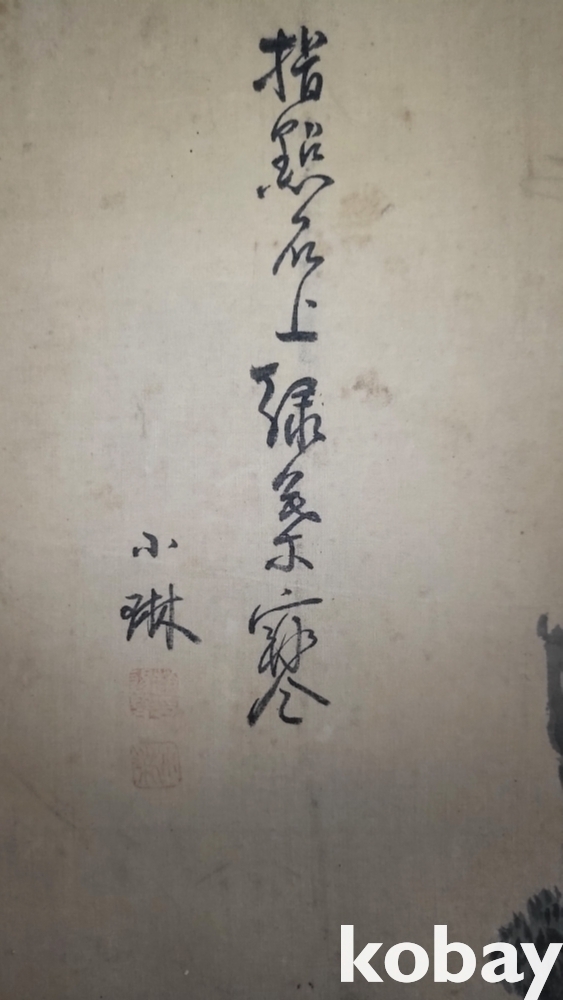 指點石上綠
小琳
kobay